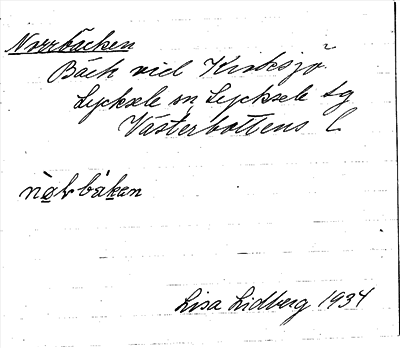 Norrbäcken
Bäck vid Kroksjö.
Lycksele sn Lycksele tg
Västerbottens L
Lisa Lidberg 1934